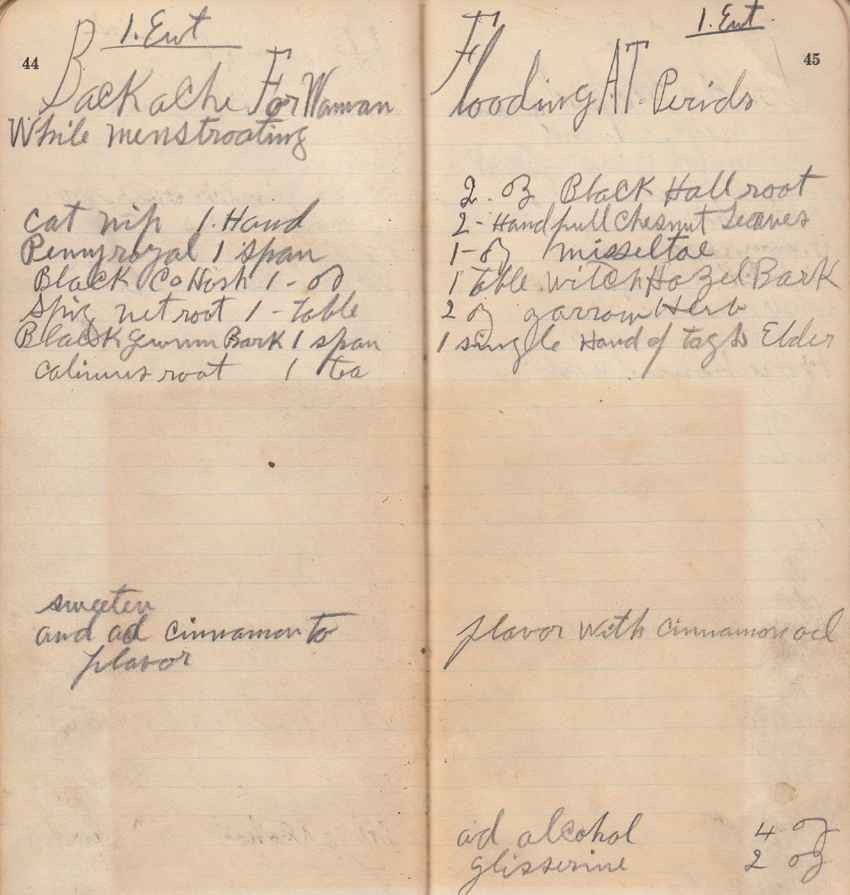 44
1. Ent
Backache For Waman
While menstroating
cat nip 1. Hand
Pennyroyal 1 span
Black CoHosh 1 - oz
Spig net root 1 - table
Black Bark 1 span
calimus root 1 tea
sweeten
and ad cinnamon to
flavor
1. Ent.
45
Flooding AT Perids
2. oz Black Hall root
2 - Handfull Chesnut Leaves
1 - oz misseltoe
1 Table witch Hazel Bark
2 oz yarrow Herb
1 single Hand of tags Elder
flavor with cinnamon
ad alcohol 4 oz
glisserine 2 oz